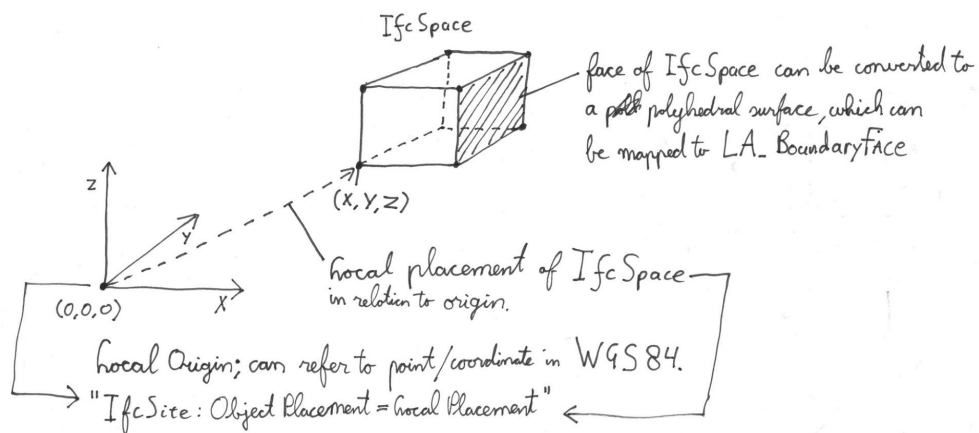 IfcSpace
face of IfcSpace can be converted to
a polyhedral surface, which can
be mapped to LA_BoundaryFace
Z
(X, Y, Z)
Y
Local placement of IfcSpace
in relation to origin.
(0,0,0)
X
Local Origin; can refer to point/coordinate in WGS84.
"IfcSite: Object Placement = Local Placement"